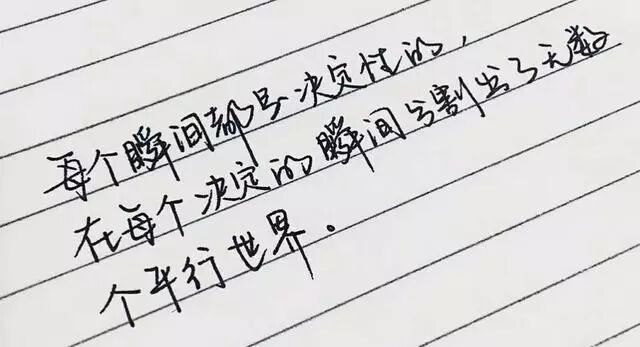 每个瞬间都是决定性的，
在每个决定的瞬间分割出了无数
个平行世界。